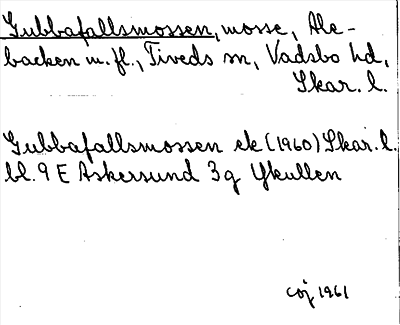 Gubbafallsmossen, mosse, Ale-
backen m.fl., Tiveds sn, Vadsbo hd,
Skar. l.
Gubbafallsmossen ek (1960) Skar. l.
bl. 9 E Askersund 3g Ykullen
1961